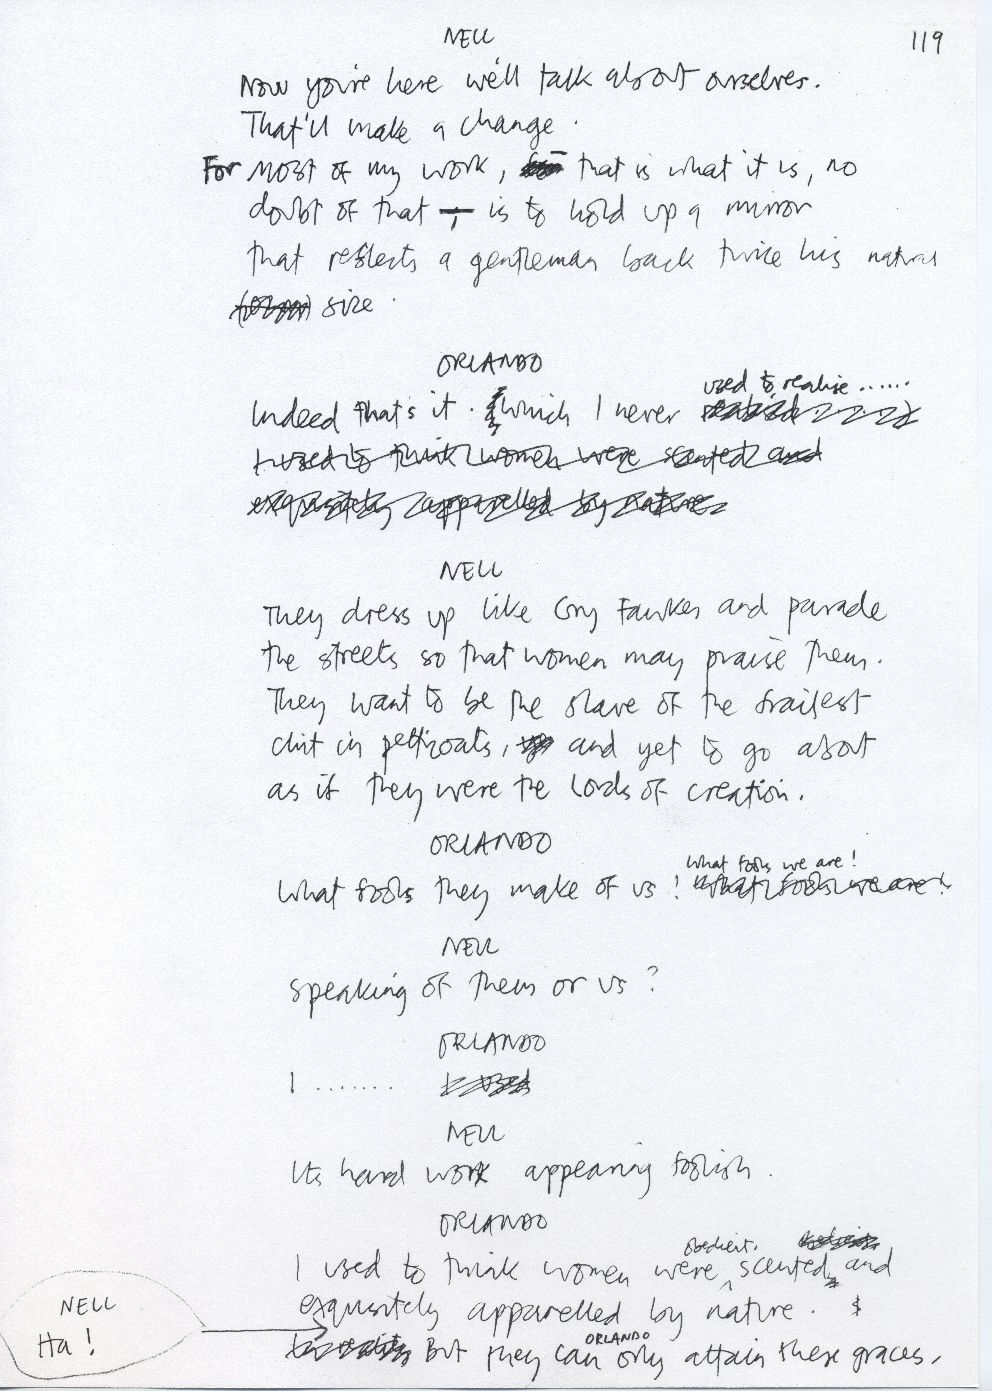 119
NELL
Now you're here we'll talk about ourselves.
That'll make a change.
For most of my work, that is what it is, no
doubt of that — is to hold up a mirror
that reflects a gentleman back twice his natural
size.
ORLANDO
used to realise ......
Indeed that's it. Which I never realised
I used to think women were scented and
exquisitely apparelled by nature.
NELL
They dress up like Guy Fawkes and parade
the streets so that women may praise them.
They want to be the slave of the frailest
chit in petticoats, and yet to go about
as if they were the Lords of creation.
ORLANDO
What fools we are!
What fools they make of us! What fools we are!
NELL
Speaking of them or us?
ORLANDO
I ....... I used
NELL
Its hard work appearing foolish.
ORLANDO
obedient,
I used to think women were scented, and
exquisitely apparelled by nature.
NELL
Ha!
ORLANDO
But they can only attain these graces,